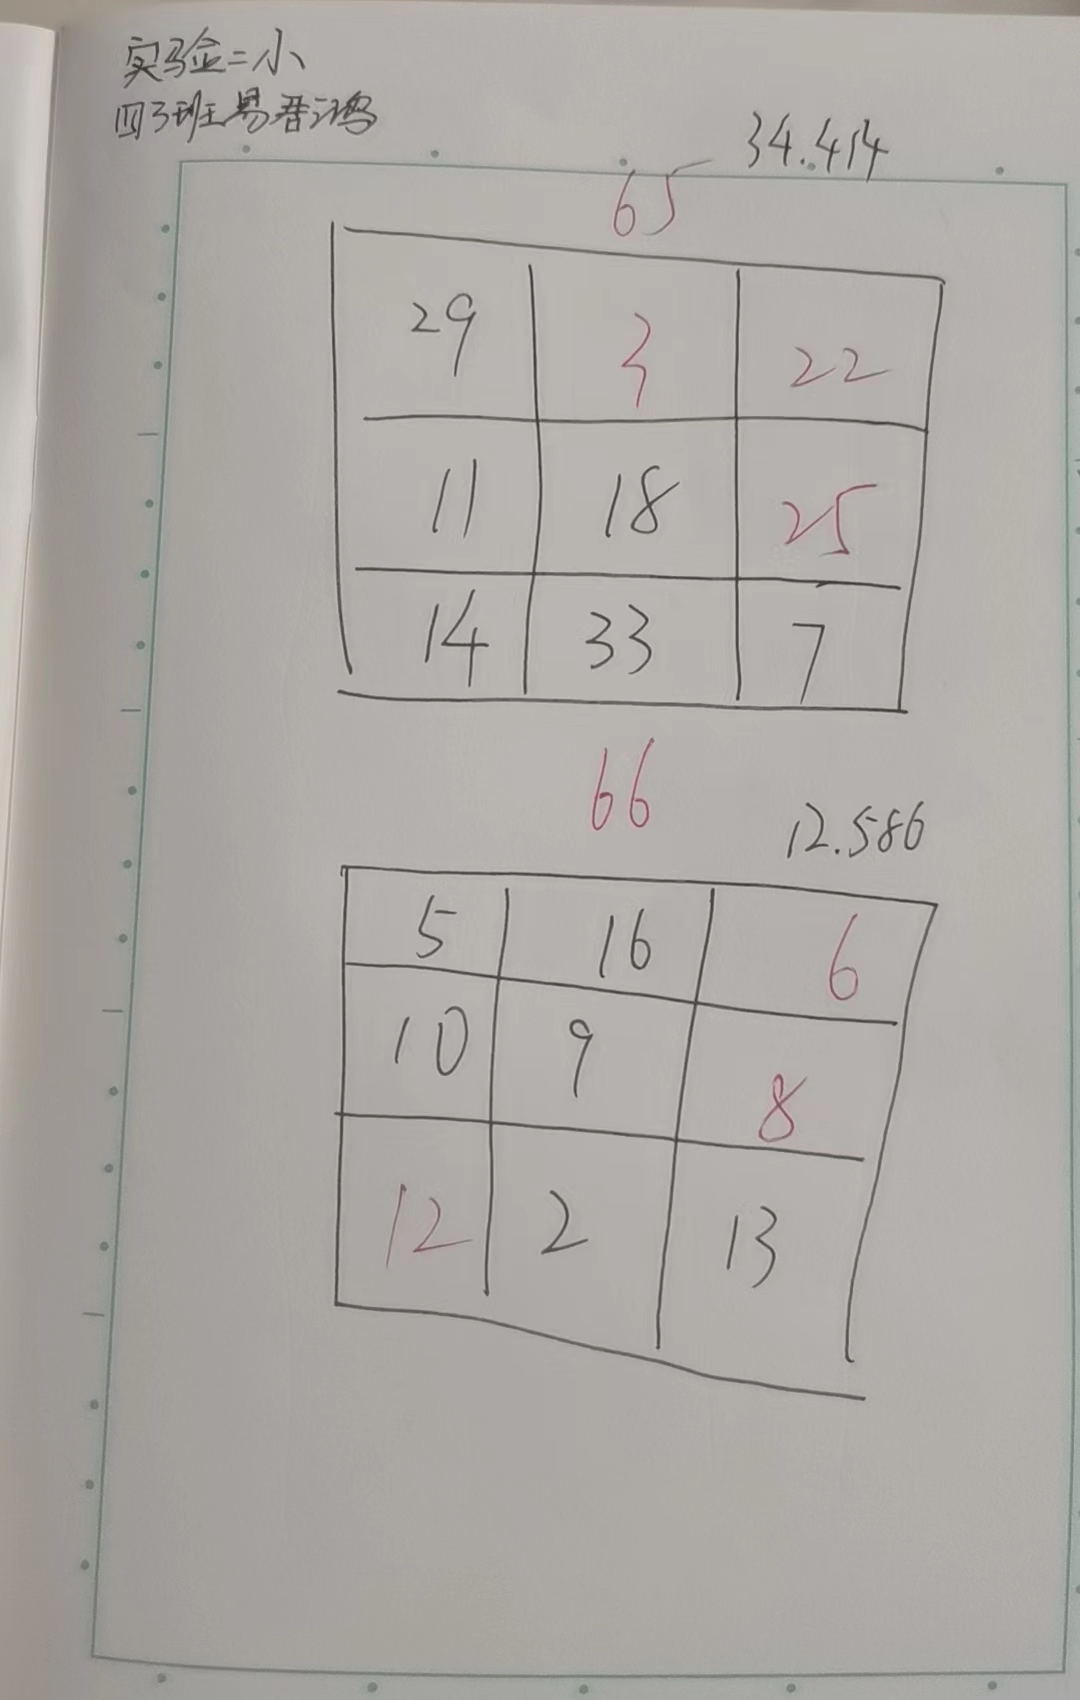 实验二小
四3班易晋鸿
34.414
65
29 3 22
11 18 25
14 33 7
66
12.586
5 16 6
10 9 8
12 2 13